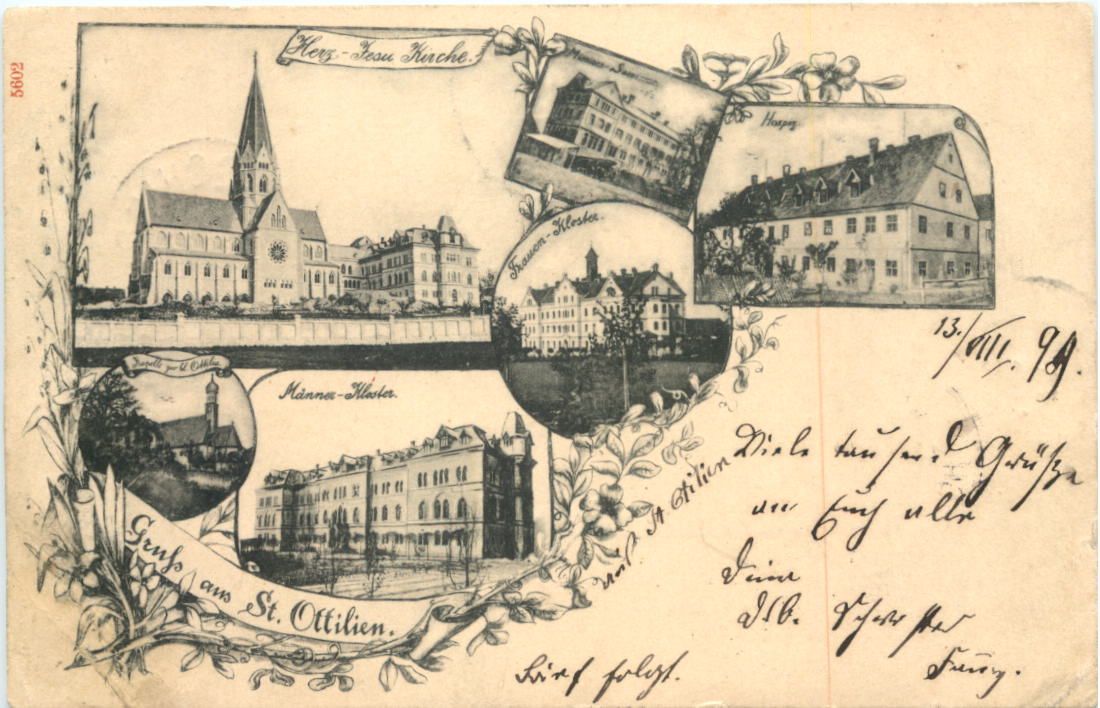 5602
Herz-Jesu Kirche.
Hospiz
Frauen-Kloster.
Kapelle zur hl. Ottilia
Männer-Kloster.
Gruß aus St. Ottilien.
13./VIII. 99.
Viele tausend Grüße
aus St Ottilien
an Euch alle
Deine
Schwester
Brief folgt.